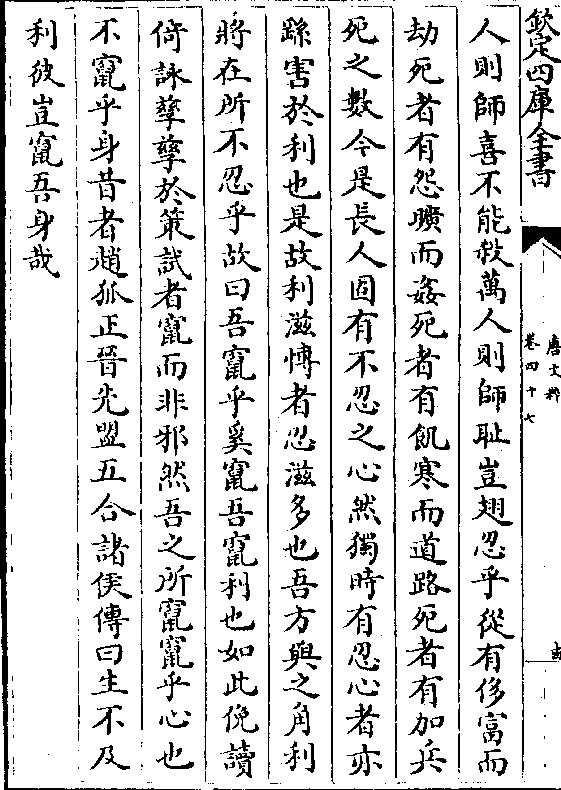 欽定四庫全書
唐文粹
卷四十七
人則師喜不能殺萬人則師耻豈翅忍乎從有侈富而
劫死者有怨曠而姦死者有飢寒而道路死者有加兵
死之數令是長人固有不忍之心然獨時有忍心者亦
繇害於利也是故利滋愽者忍滋多也吾方與之角利
將在所不忍乎故曰吾竄乎奚竄吾竄利也如此俛讀
倚詠孳孳於策試者竄而非邪然吾之所竄竄乎心也
不竄乎身昔者趙狐正晉先盟五合諸侯傳曰生不及
利彼豈竄吾身哉